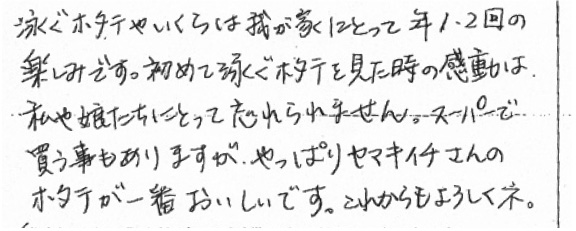 泳ぐホタテやいくらは我が家にとって年1・2回の
楽しみです。初めて泳ぐホタテを見た時の感動は、
私や娘たちにとって忘れられません。スーパーで
買う事もありますが、やっぱりヤマキイチさんの
ホタテが一番おいしいです。これからもよろしくネ。